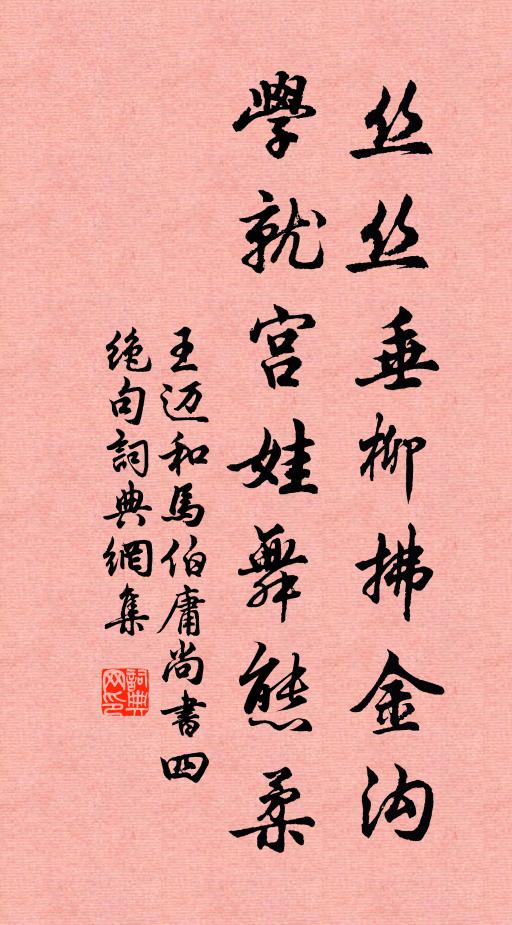 丝丝垂柳拂金沟
學就宫娃舞態柔
王迈和馬伯庸尚書四
絶句詞典網集
詞典网印